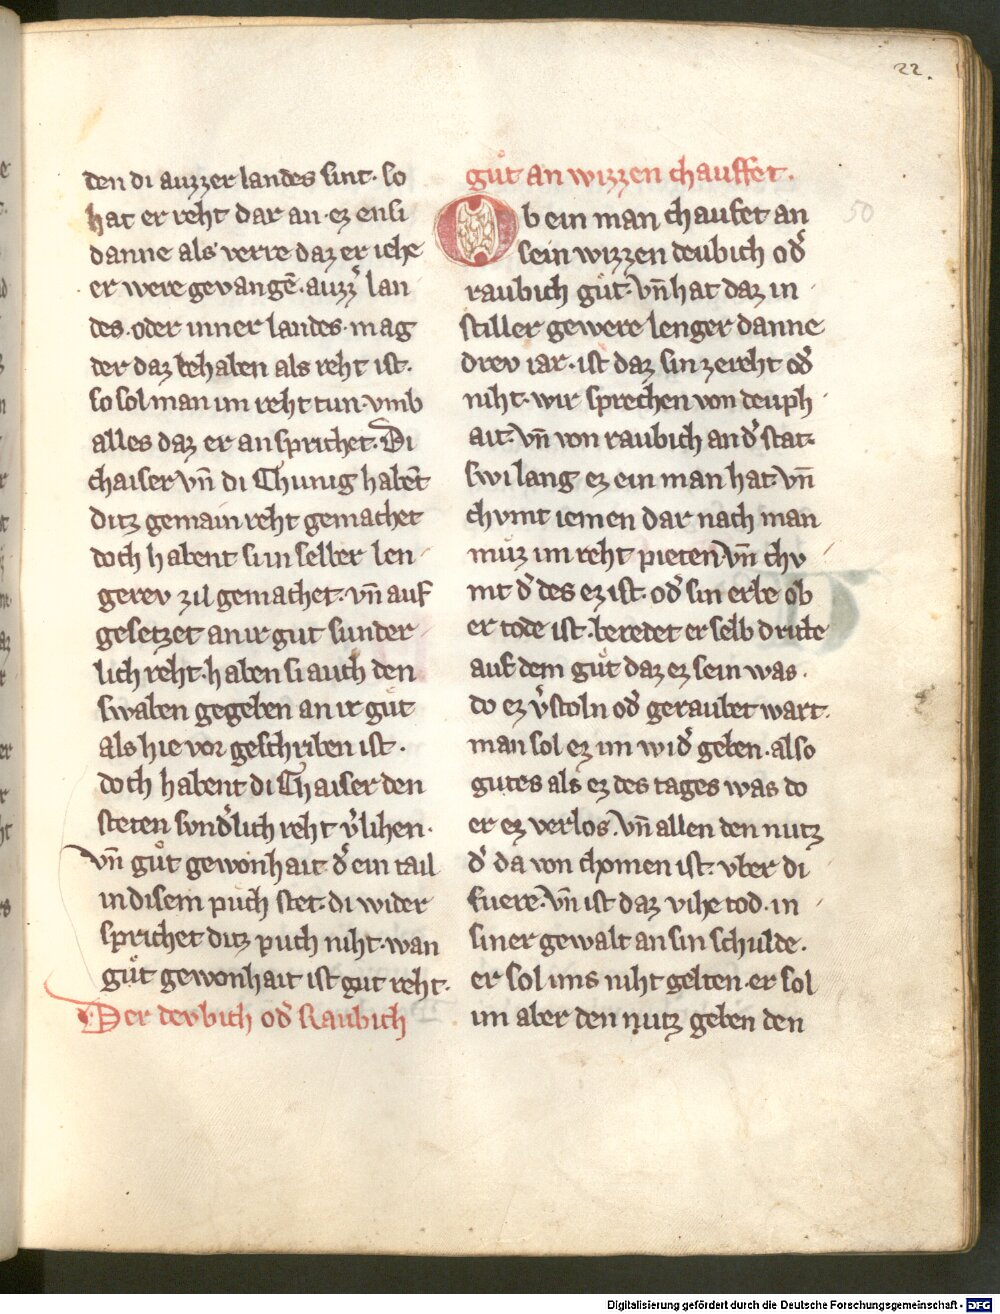 22.
den di auzzer landes sint· so
hat er reht dar an· ez ensi
danne als verre daz er iehe
er were gevangē· auzz͛ lan
des· oder inner landes· mag
der daz behaben als reht ist.
so sol man im reht tun· vmb
alles daz er an sprichet· Di
chaiser vn̄ di Chunig habēt
ditz gemain reht gemachet
doch habent si in selber len
gerev zil gemachet· vn̄ auf
gesetzet an ir gut sunder
lich reht· haben si auch den
swaben gegeben an ir guͦt
als hie vor geschriben ist·
doch habent di Chaiser den
steten svnd͛lich reht v͛lihen·
vn̄ guͦt gewonhait· d͛ ein tail
in disem puch stet· di wider
sprichet ditz puch niht· wan
guͦt gewonhait ist gut reht·
Der devbich od͛ Raubich
guͦt an wizzen chauffet·
Ob ein man chaufet an
50
sein wizzen deubich od͛
raubich guͦt· vn̄ hat daz in
stiller gewere lenger danne
drev iar· ist daz sin ze reht od͛
niht· wir sprechen von deuph
ait· vn̄ von raubich an d͛ stat·
swi lang ez ein man hat· vn̄
chvmt iemen dar nach man
muͦz im reht pieten· vn̄ chv
mt d͛ des ez ist· od͛ sin erbe ob
er tode ist· beredet er selb dritte
auf dem guͦt daz ez sein was·
do ez v͛stoln od͛ geraubet wart·
man sol ez im wid͛ geben· also
gutes als ez des tages was do
er ez verlos· vn̄ allen den nutz
d͛ da von chomen ist· vber di
fuere· vn̄ ist daz vihe tod· in
siner gewalt an sin schulde·
er sol ims niht gelten· er sol
im aber den nutz geben den
Digitalisierung gefördert durch die Deutsche Forschungsgemeinschaft - DFG